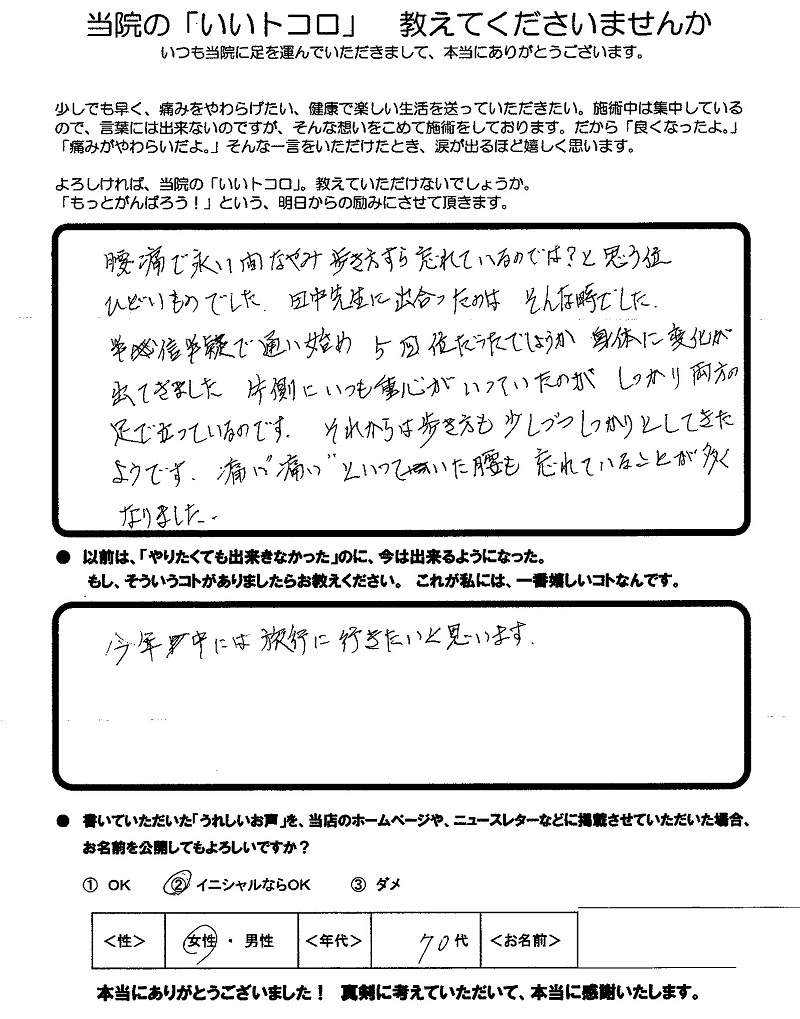 当院の「いいトコロ」　教えてくださいませんか
いつも当院に足を運んでいただきまして、本当にありがとうございます。
少しでも早く、痛みをやわらげたい、健康で楽しい生活を送っていただきたい。施術中は集中している
ので、言葉には出来ないのですが、そんな想いをこめて施術をしております。だから「良くなったよ。」
「痛みがやわらいだよ。」そんな一言をいただけたとき、涙が出るほど嬉しく思います。
よろしければ、当院の「いいトコロ」。教えていただけないでしょうか。
「もっとがんばろう！」という、明日からの励みにさせて頂きます。
腰痛で永い間なやみ 歩き方すら忘れているのでは？と思う位
ひどいものでした. 田中先生に出合ったのは そんな時でした.
半信半疑で通い始め 5回位たったでしょうか 身体に変化が
出てきました 片側にいつも重心がいっていたのが しっかり両方の
足で立っているのです. それからは歩き方も少しづつしっかりとしてきた
ようです. 痛い“痛い”といっていた腰も 忘れていることが多く
なりました.
● 以前は、「やりたくても出来きなかった」のに、今は出来るようになった。
もし、そういうコトがありましたらお教えください。 これが私には、一番嬉しいコトなんです。
今年中には旅行に行きたいと思います.
● 書いていただいた「うれしいお声」を、当店のホームページや、ニュースレターなどに掲載させていただいた場合、
お名前を公開してもよろしいですか？
① OK ② イニシャルならOK ③ ダメ
＜性＞ 女性 ・ 男性 ＜年代＞ 70代 ＜お名前＞
本当にありがとうございました！ 真剣に考えていただいて、本当に感謝いたします。